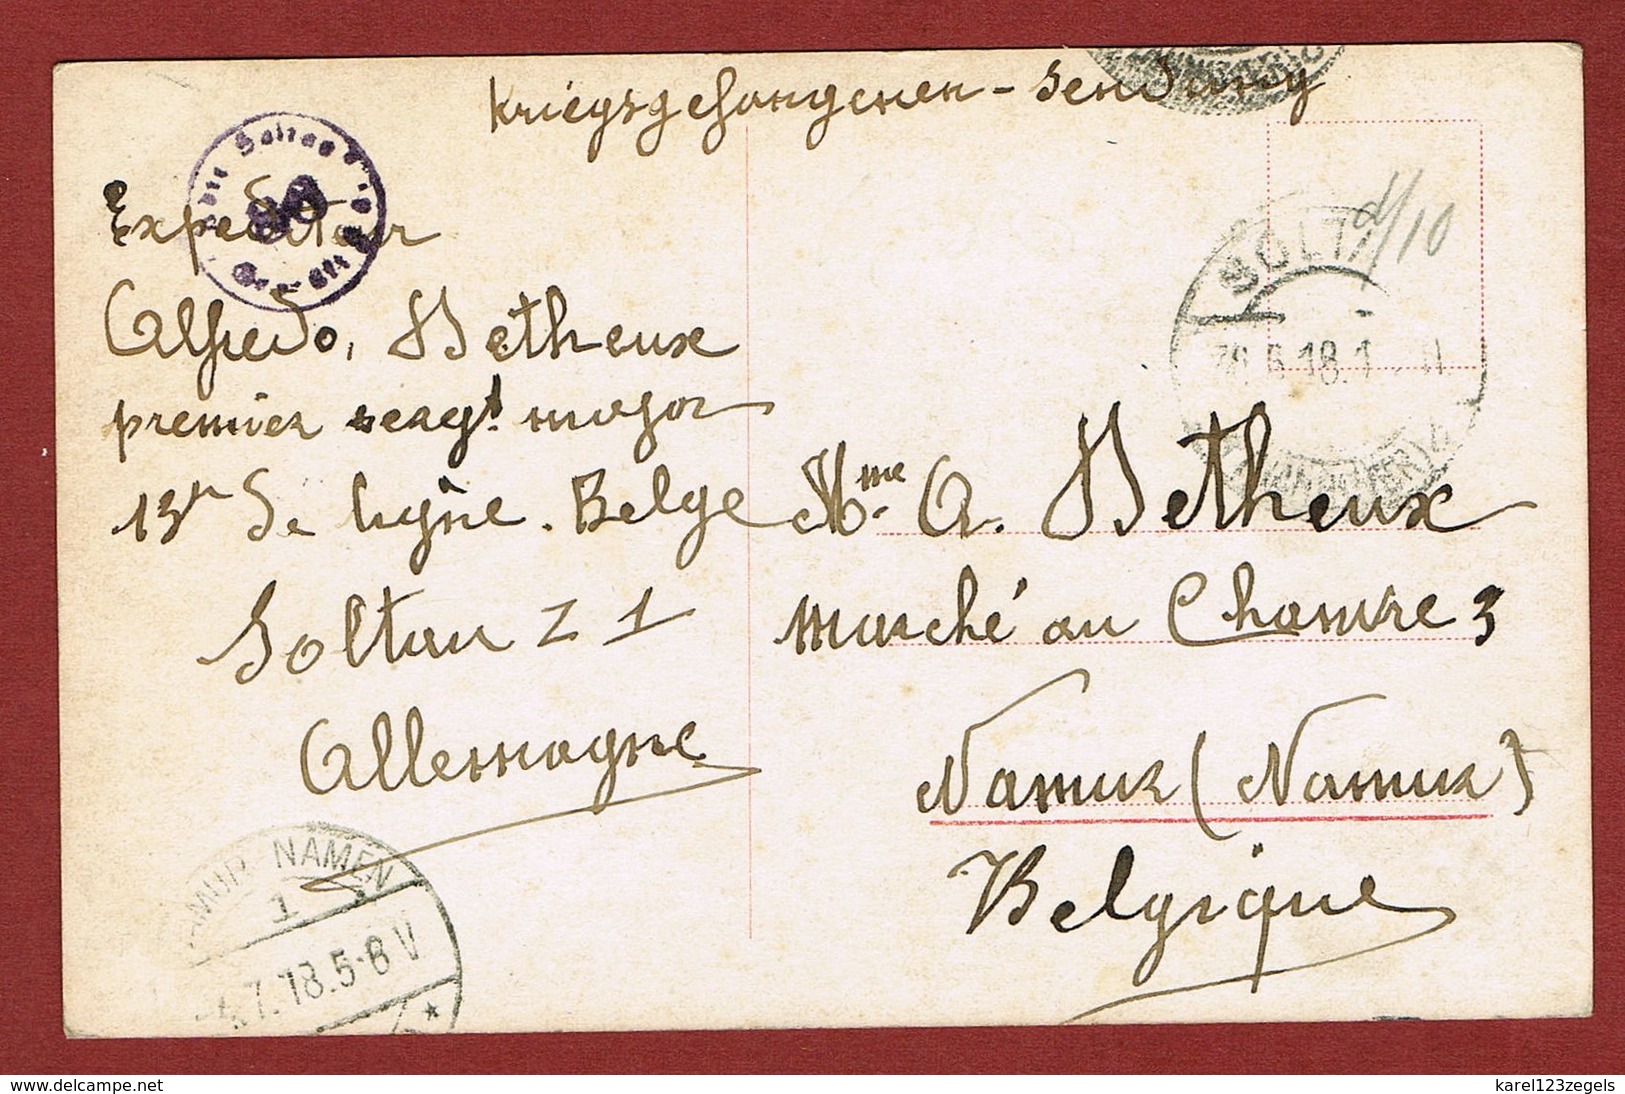 Kriegsgefangenen-Sendung
Expediteur
Alfredo, Betheux
premier sergt major
13r de ligne. Belge
Soltau Z 1
Allemagne
Mme A. Betheux
marché au Chanvre 3
Namur (Namur)
Belgique
SOLTAU
.6.18.1
d/10
NAMUR NAMEN
1
4.7.18.5-6V
delcampe.net
karel123zegels